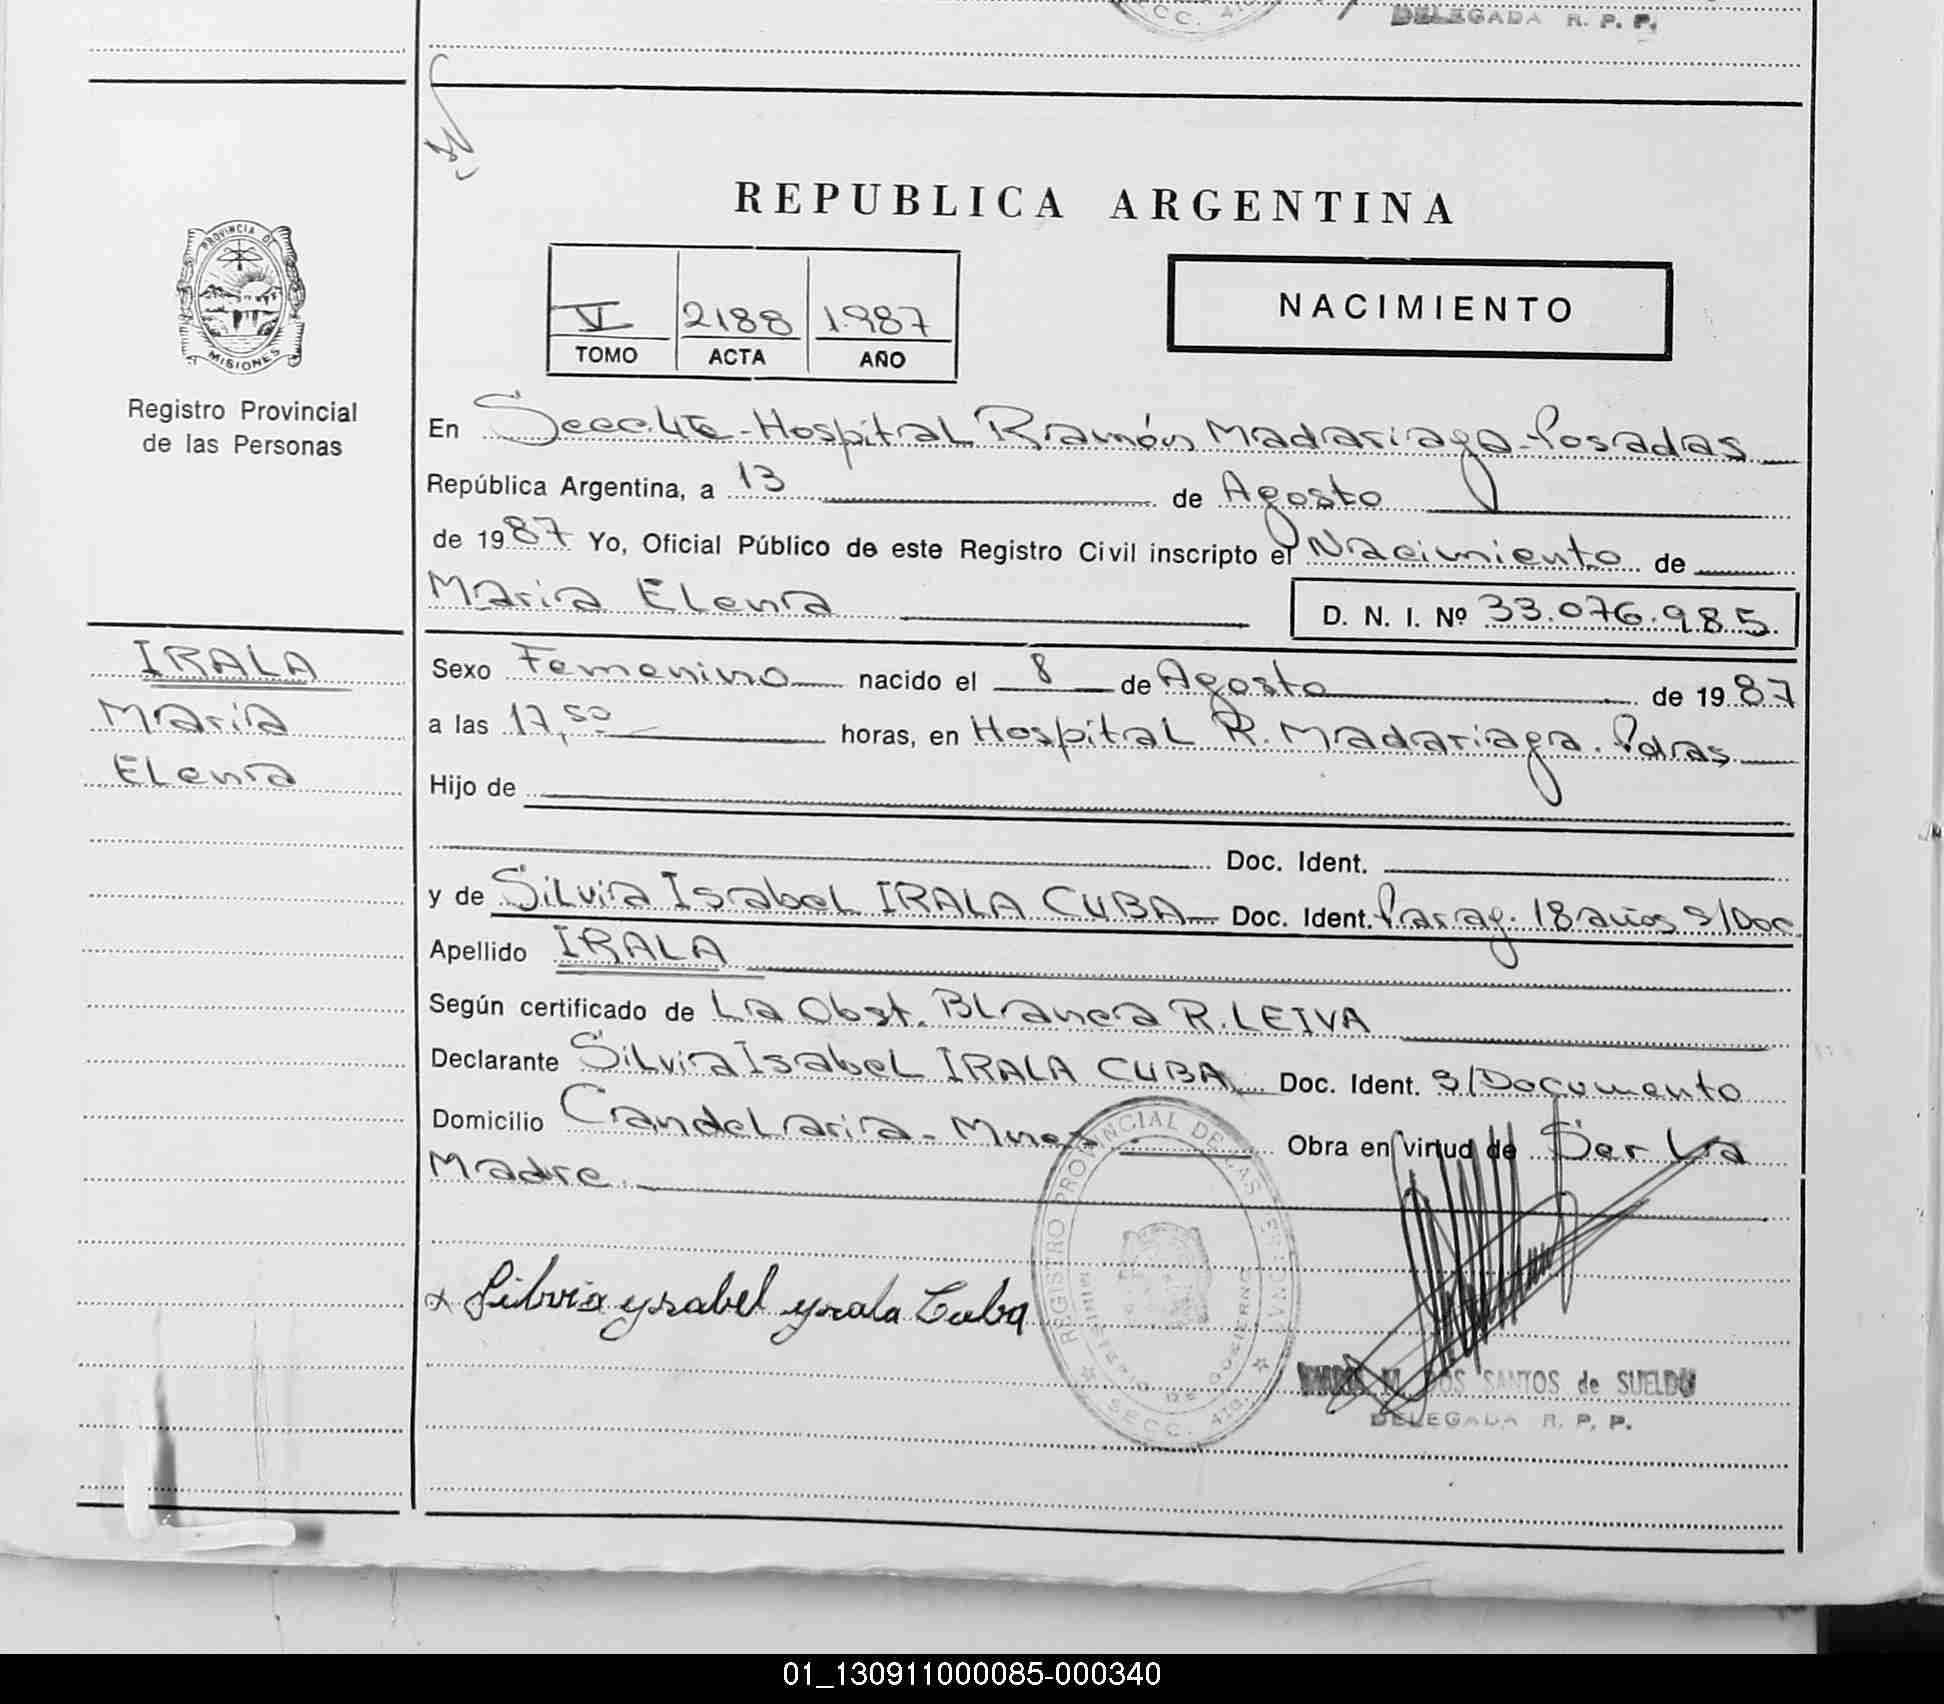 DELEGADA R. P. P.
REPUBLICA ARGENTINA
PROVINCIA DE
MISIONES
VI 2188 1987
TOMO ACTA AÑO
NACIMIENTO
Registro Provincial
de las Personas
En Secc. 4ta - Hospital Ramón Madariaga - Posadas
República Argentina, a 13 de Agosto
de 1987 Yo, Oficial Público de este Registro Civil inscripto el Nacimiento de
Maria Elena D. N. I. Nº 33.076.985
IRALA
María
Elena
Sexo Femenino nacido el 8 de Agosto de 1987
a las 17,50 horas, en Hospital R. Madariaga. Pdas
Hijo de
Doc. Ident.
y de Silvia Isabel IRALA CUBA Doc. Ident. Parag. 18 años S/Doc.
Apellido IRALA
Según certificado de La Obst. Blanca R. LEIVA
Declarante Silvia Isabel IRALA CUBA Doc. Ident. S/Documento
Domicilio Candelaria - Mnes Obra en virtud de Ser La
Madre.
REGISTRO PROVINCIAL DE LAS PERSONAS
MINISTERIO DE GOBIERNO
SECC. 4ta.
x Silvia ysabel yrala Cuba
M. DOS SANTOS de SUELDO
DELEGADA R. P. P.
01_130911000085-000340